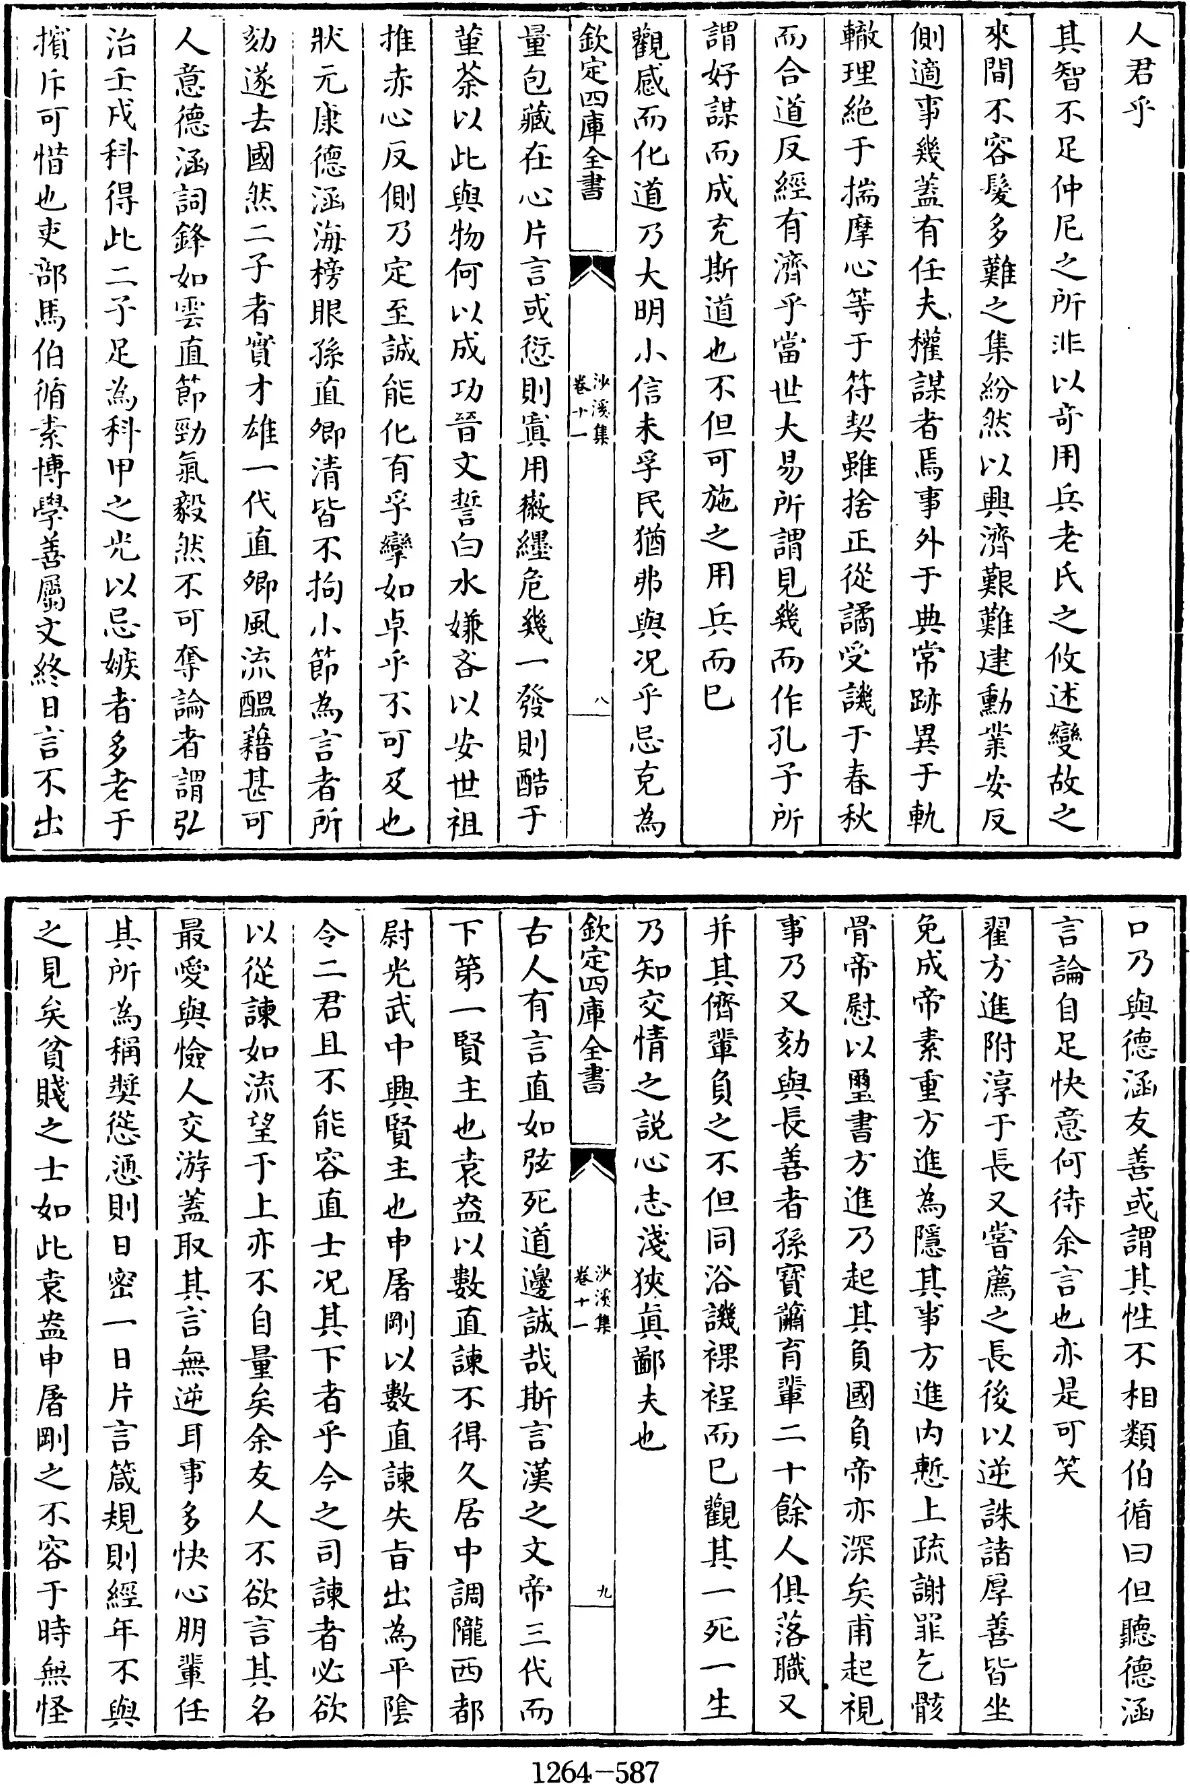 人君乎
其智不足仲尼之所非以奇用兵老氏之攸述變故之
來間不容髮多難之集紛然以興濟艱難建勳業安反
側適事幾蓋有任夫權謀者焉事外于典常跡異于軌
轍理絶于揣摩心等于符契雖捨正從譎受譏于春秋
而合道反經有濟乎當世大易所謂見幾而作孔子所
謂好謀而成充斯道也不但可施之用兵而已
觀感而化道乃大明小信未孚民猶弗與况乎忌克為
欽定四庫全書
沙溪集
卷十一
八
量包藏在心片言或愆則寘用徽纆危幾一發則酷于
堇荼以此與物何以成功晉文誓白水嫌吝以安世祖
推赤心反側乃定至誠能化有孚攣如卓乎不可及也
狀元康德涵海榜眼孫直卿清皆不拘小節為言者所
劾遂去國然二子者實才雄一代直卿風流醞藉甚可
人意德涵詞鋒如雲直節勁氣毅然不可奪論者謂弘
治壬戌科得此二子足為科甲之光以忌嫉者多老于
擯斥可惜也吏部馬伯循素博學善屬文終日言不出
口乃與德涵友善或謂其性不相類伯循曰但聽德涵
言論自足快意何待余言也亦是可笑
翟方進附淳于長又嘗薦之長後以逆誅諸厚善皆坐
免成帝素重方進為隱其事方進内慙上疏謝罪乞骸
骨帝慰以璽書方進乃起其負國負帝亦深矣甫起視
事乃又劾與長善者孫寶蕭育輩二十餘人俱落職又
并其儕輩負之不但同浴譏裸裎而已觀其一死一生
乃知交情之説心志淺狹真鄙夫也
欽定四庫全書
沙溪集
卷十一
九
古人有言直如弦死道邊誠哉斯言漢之文帝三代而
下第一賢主也袁盎以數直諫不得久居中調隴西都
尉光武中興賢主也申屠剛以數直諫失旨出為平陰
令二君且不能容直士况其下者乎今之司諫者必欲
以從諫如流望于上亦不自量矣余友人不欲言其名
最愛與憸人交游蓋取其言無逆耳事多快心朋輩任
其所為稱奬慫慂則日密一日片言箴規則經年不與
之見矣貧賤之士如此袁盎申屠剛之不容于時無怪
1264-587